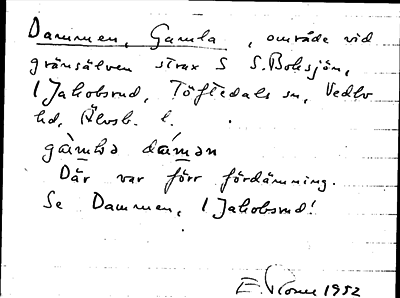 Dammen, Gamla, område vid
gränsälven strax S S. Boksjön,
1 Jakobsrud, Töftedals sn, Vedbo
hd, Älvsb. l.
gàmba dámən
Där var förr fördämning.
Se Dammen, 1 Jakobsrud!
1952